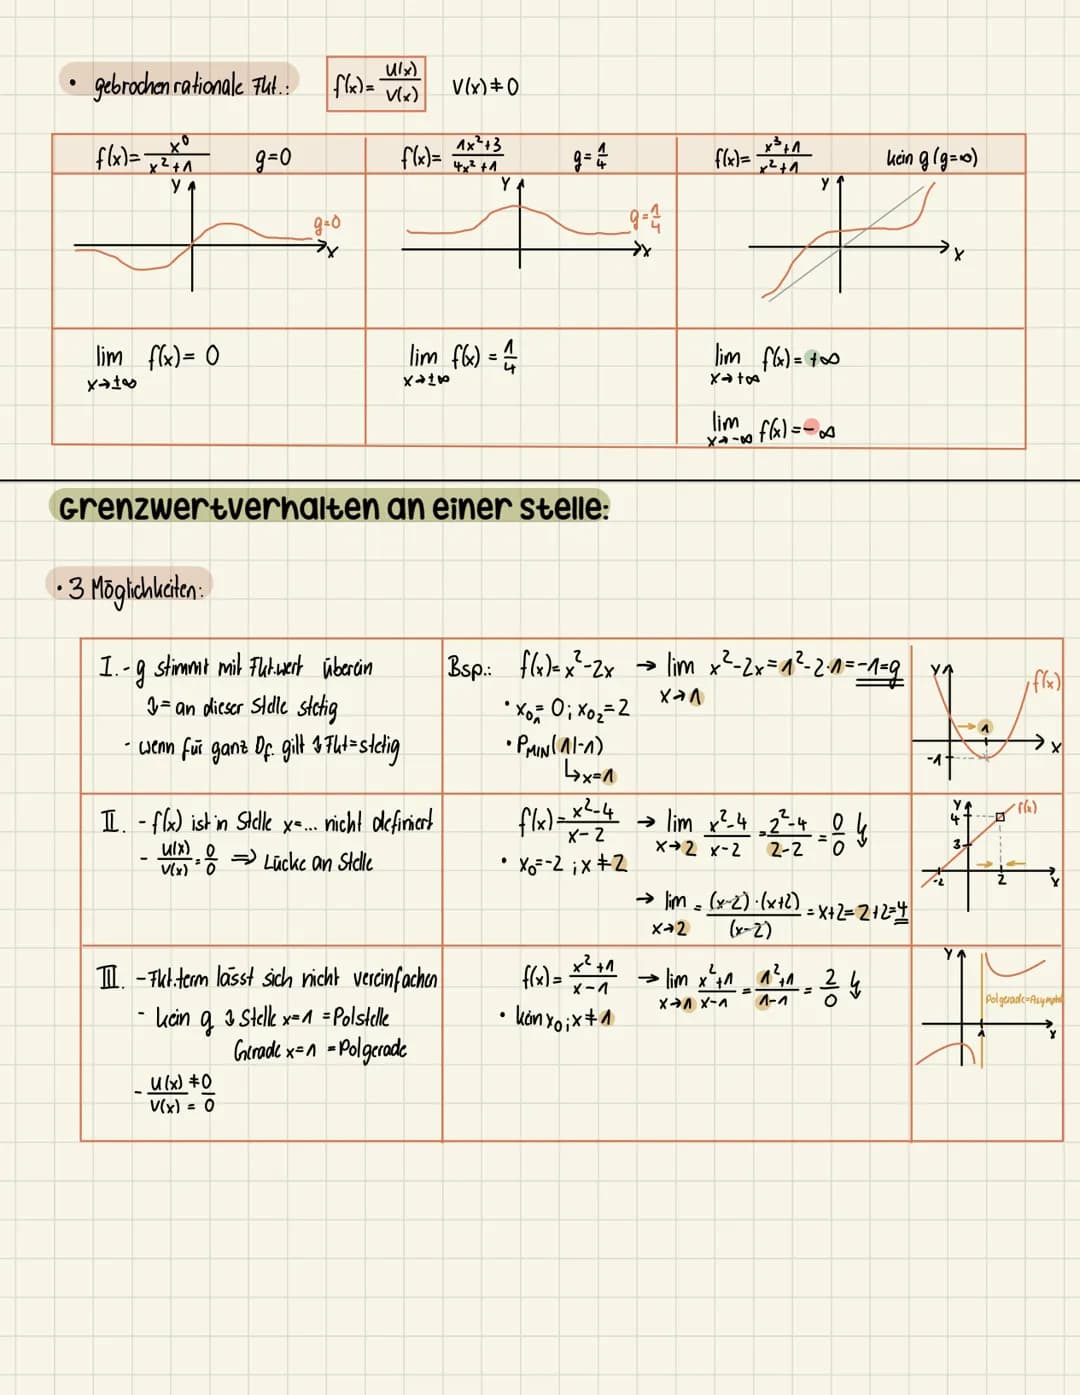 • gebrochen rationale Fkt.: f(x)= U(x)/V(x) V(x)≠0
f(x)= x⁰/x²+1 g=0
f(x)= 1x²+3/4x²+1 g=1/4
f(x)= x³+1/x²+1 kein g (g=∞)
y
g=0
x
y
g=1/4
x
y
x
lim f(x)= 0
x→±∞
lim f(x) = 1/4
x→±∞
lim f(x)= +∞
x→+∞
lim f(x) = -∞
x→-∞
Grenzwertverhalten an einer Stelle:
• 3 Möglichkeiten:
I. - g stimmt mit Fkt.wert überein
↯= an dieser Stelle stetig
- wenn für ganz Df. gilt ↯ Fkt=stetig
Bsp.: f(x)= x²-2x → lim x²-2x = 1²-2·1 = -1=g
x→1
• x₀₁= 0; x₀₂= 2
• PMIN(1|-1)
↳x=1
y
f(x)
1
x
-1
II. - f(x) ist in Stelle x=... nicht definiert
- U(x)/V(x) = 0/0 ⇒ Lücke an Stelle
f(x)= x²-4/x-2 → lim x²-4/x-2 = 2²-4/2-2 = 0/0 ↯
x→2
• x₀=-2 ; x≠2
→ lim = (x-2)·(x+2)/(x-2) = x+2= 2+2=4
x→2
y
f(x)
4
3
-2
2
x
III. - Fkt.term lässt sich nicht vereinfachen
- kein g ↯ Stelle x=1 = Polstelle
Gerade x=1 = Polgerade
- U(x) ≠0/V(x) = 0
f(x)= x²+1/x-1 → lim x²+1/x-1 = 1²+1/1-1 = 2/0 ↯
x→1
• kein x₀; x≠1
y
Polgerade=Asympt
1
x